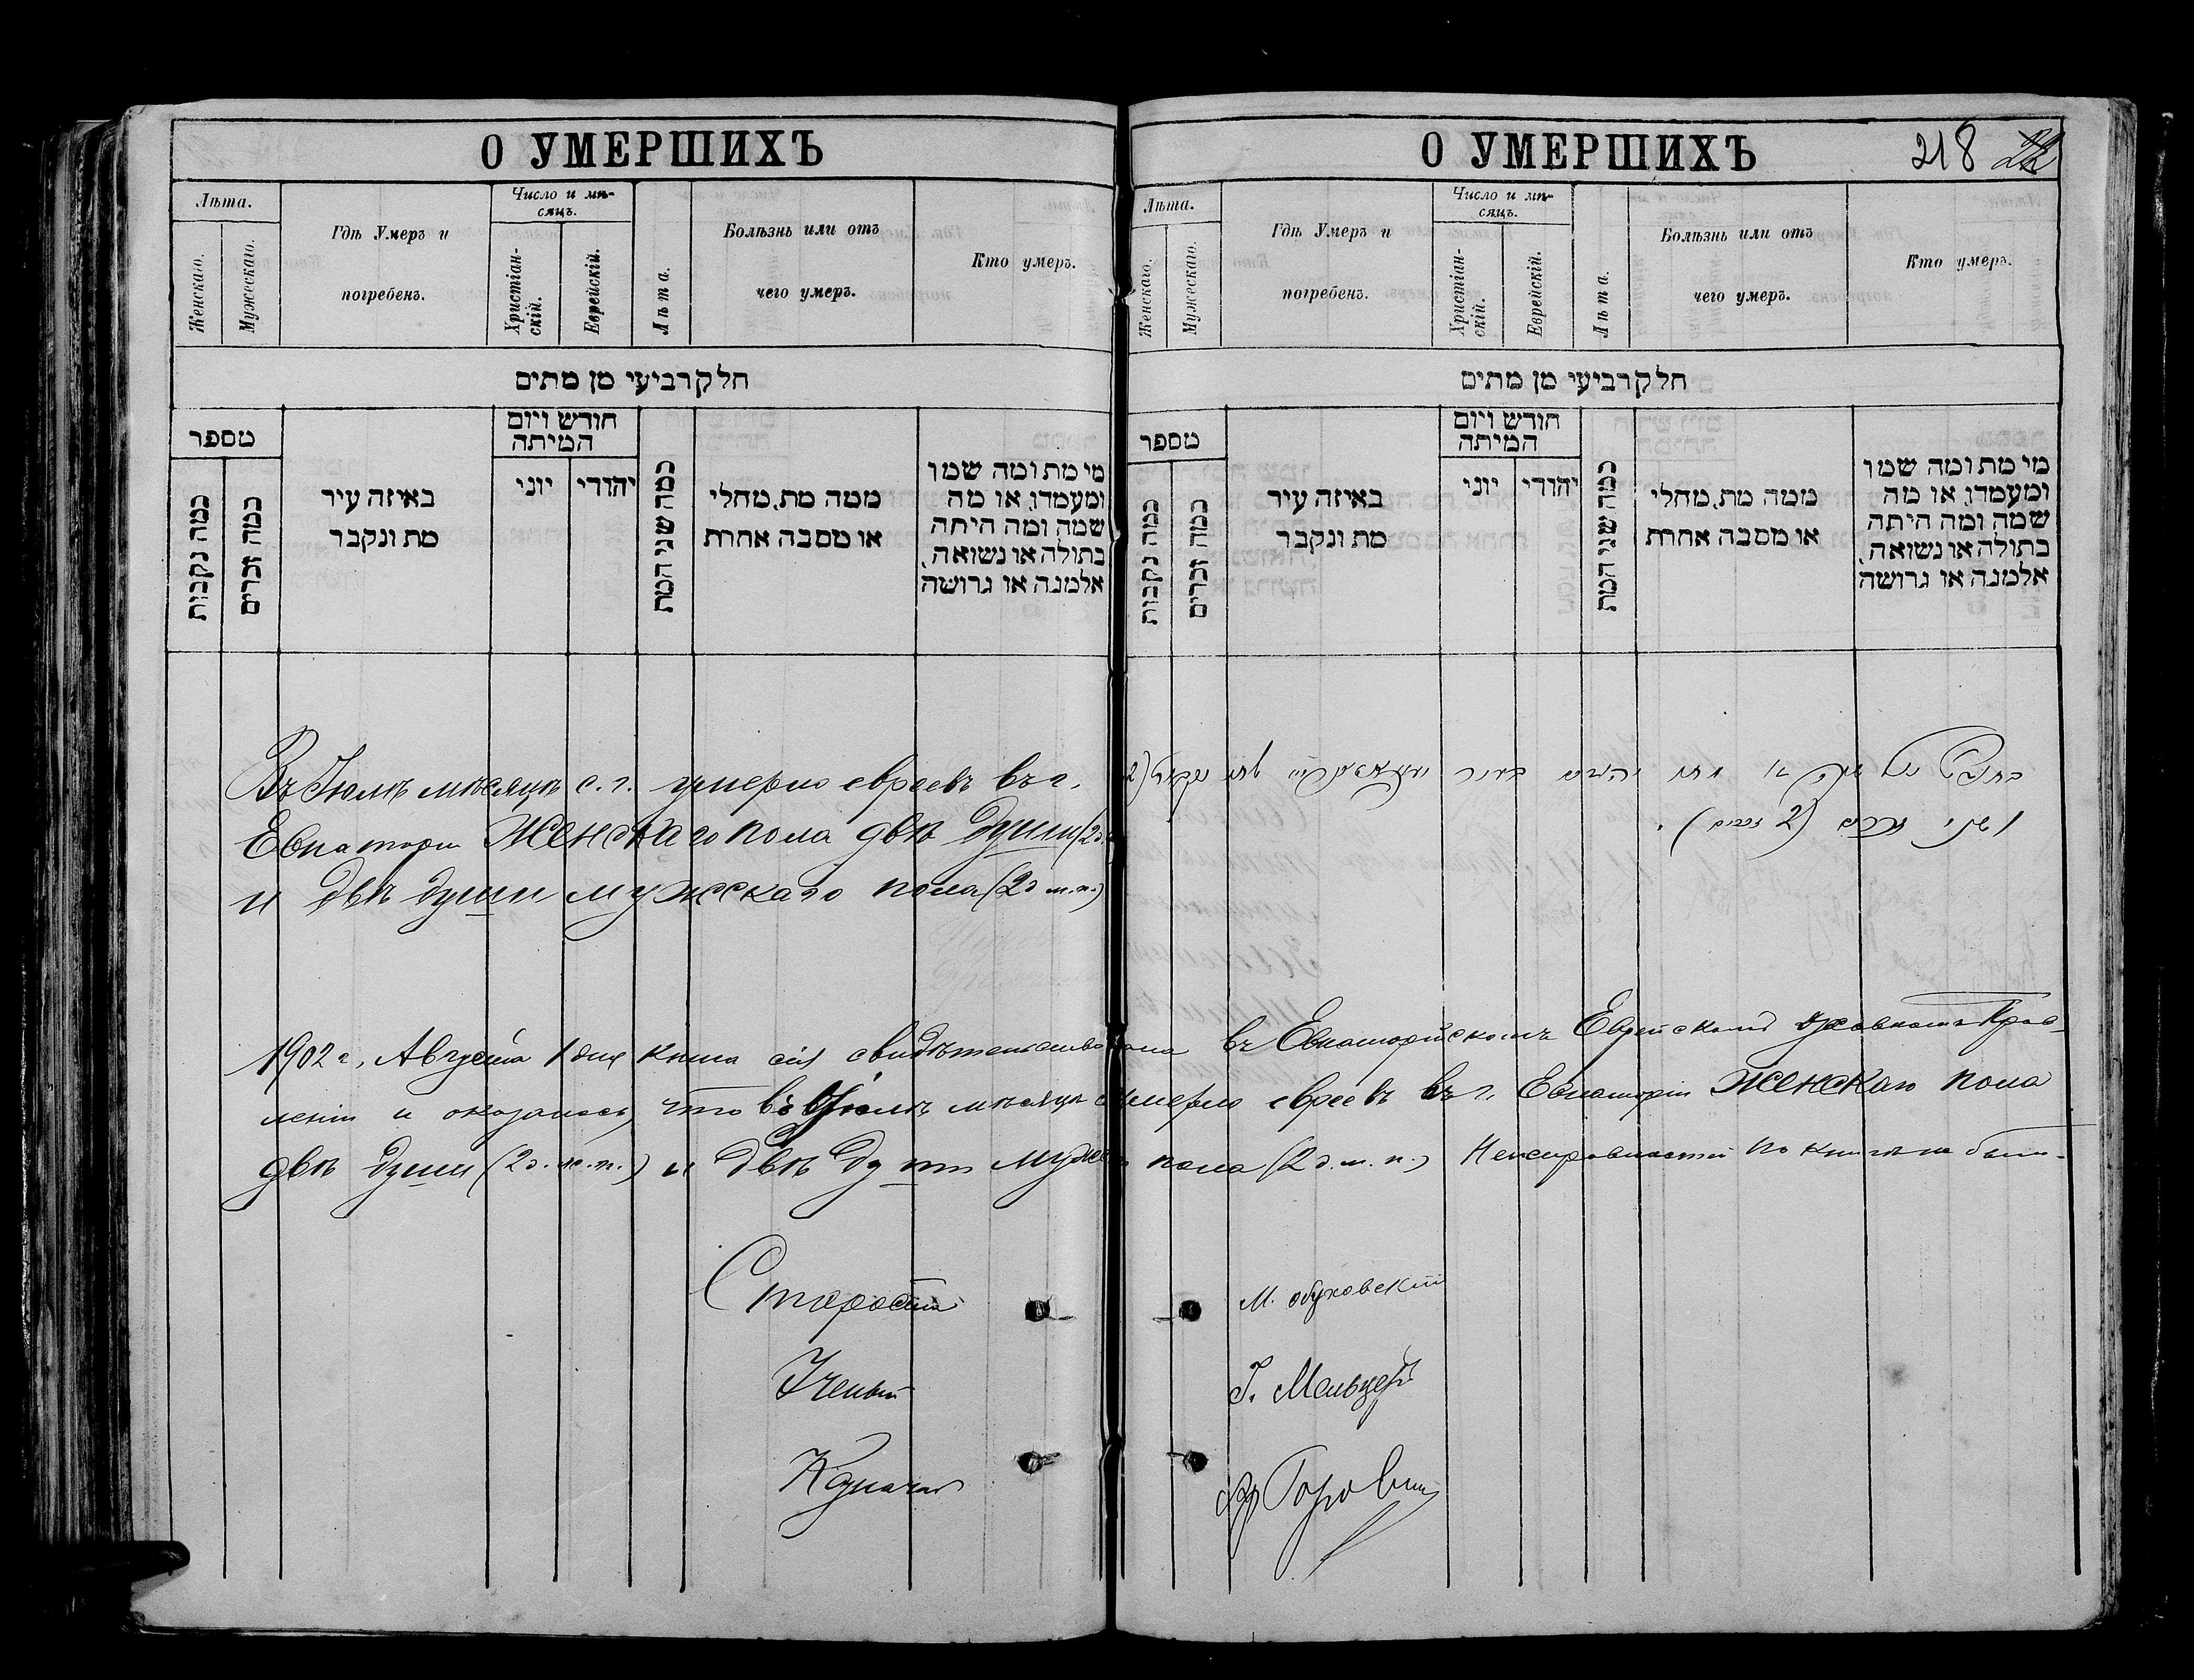 О УМЕРШИХЪ
Лѣта.
Женскаго.
Мужескаго.
Гдѣ Умеръ и
погребенъ.
Число и мѣ-
сяцъ.
Христіан-
скій.
Еврейскій.
Лѣта.
Болѣзнь или отъ
чего умеръ.
Кто умеръ.
חלק רביעי מן מתים
מספר
כמה נקבות
כמה זכרים
באיזה עיר
מת ונקבר
חודש ויום
המיתה
יוני
יהודי
כמה שני המת
ממה מת, מחלי
או מסבה אחרת
מי מת ומה שמו
ומעמדו, או מה
שמה ומה היתה
בתולה או נשואה,
אלמנה או גרושה
Въ Іюлѣ мѣсяцѣ с. г. умерло евреевъ въ г.
Евпаторіи женскаго пола двѣ души (2 д.
и двѣ души мужескаго пола (2 д м. п.)
О УМЕРШИХЪ
218 22
Лѣта.
Женскаго.
Мужескаго.
Гдѣ Умеръ и
погребенъ.
Число и мѣ-
сяцъ.
Христіан-
скій.
Еврейскій.
Лѣта.
Болѣзнь или отъ
чего умеръ.
Кто умеръ.
חלק רביעי מן מתים
מספר
כמה נקבות
כמה זכרים
באיזה עיר
מת ונקבר
חודש ויום
המיתה
יוני
יהודי
כמה שני המת
ממה מת, מחלי
או מסבה אחרת
מי מת ומה שמו
ומעמדו, או מה
שמה ומה היתה
בתולה או נשואה,
אלמנה או גרושה
ושני זכרים (2 זכרים).
1902 г. Августа 1 дня книга сія свидѣтельствована въ Евпаторійскомъ Еврейскомъ духовномъ Прав-
леніи и оказалось, что въ Іюлѣ мѣсяцѣ умерло евреевъ въ г. Евпаторіи женскаго пола
двѣ души (2 д. ж. п.) и двѣ души мужск пола (2 д. м. п.) Неисправностей по книгѣ не было.
Староста М. Обуховскій
Ученый Г. Мельцеръ
Казначей Горовиц